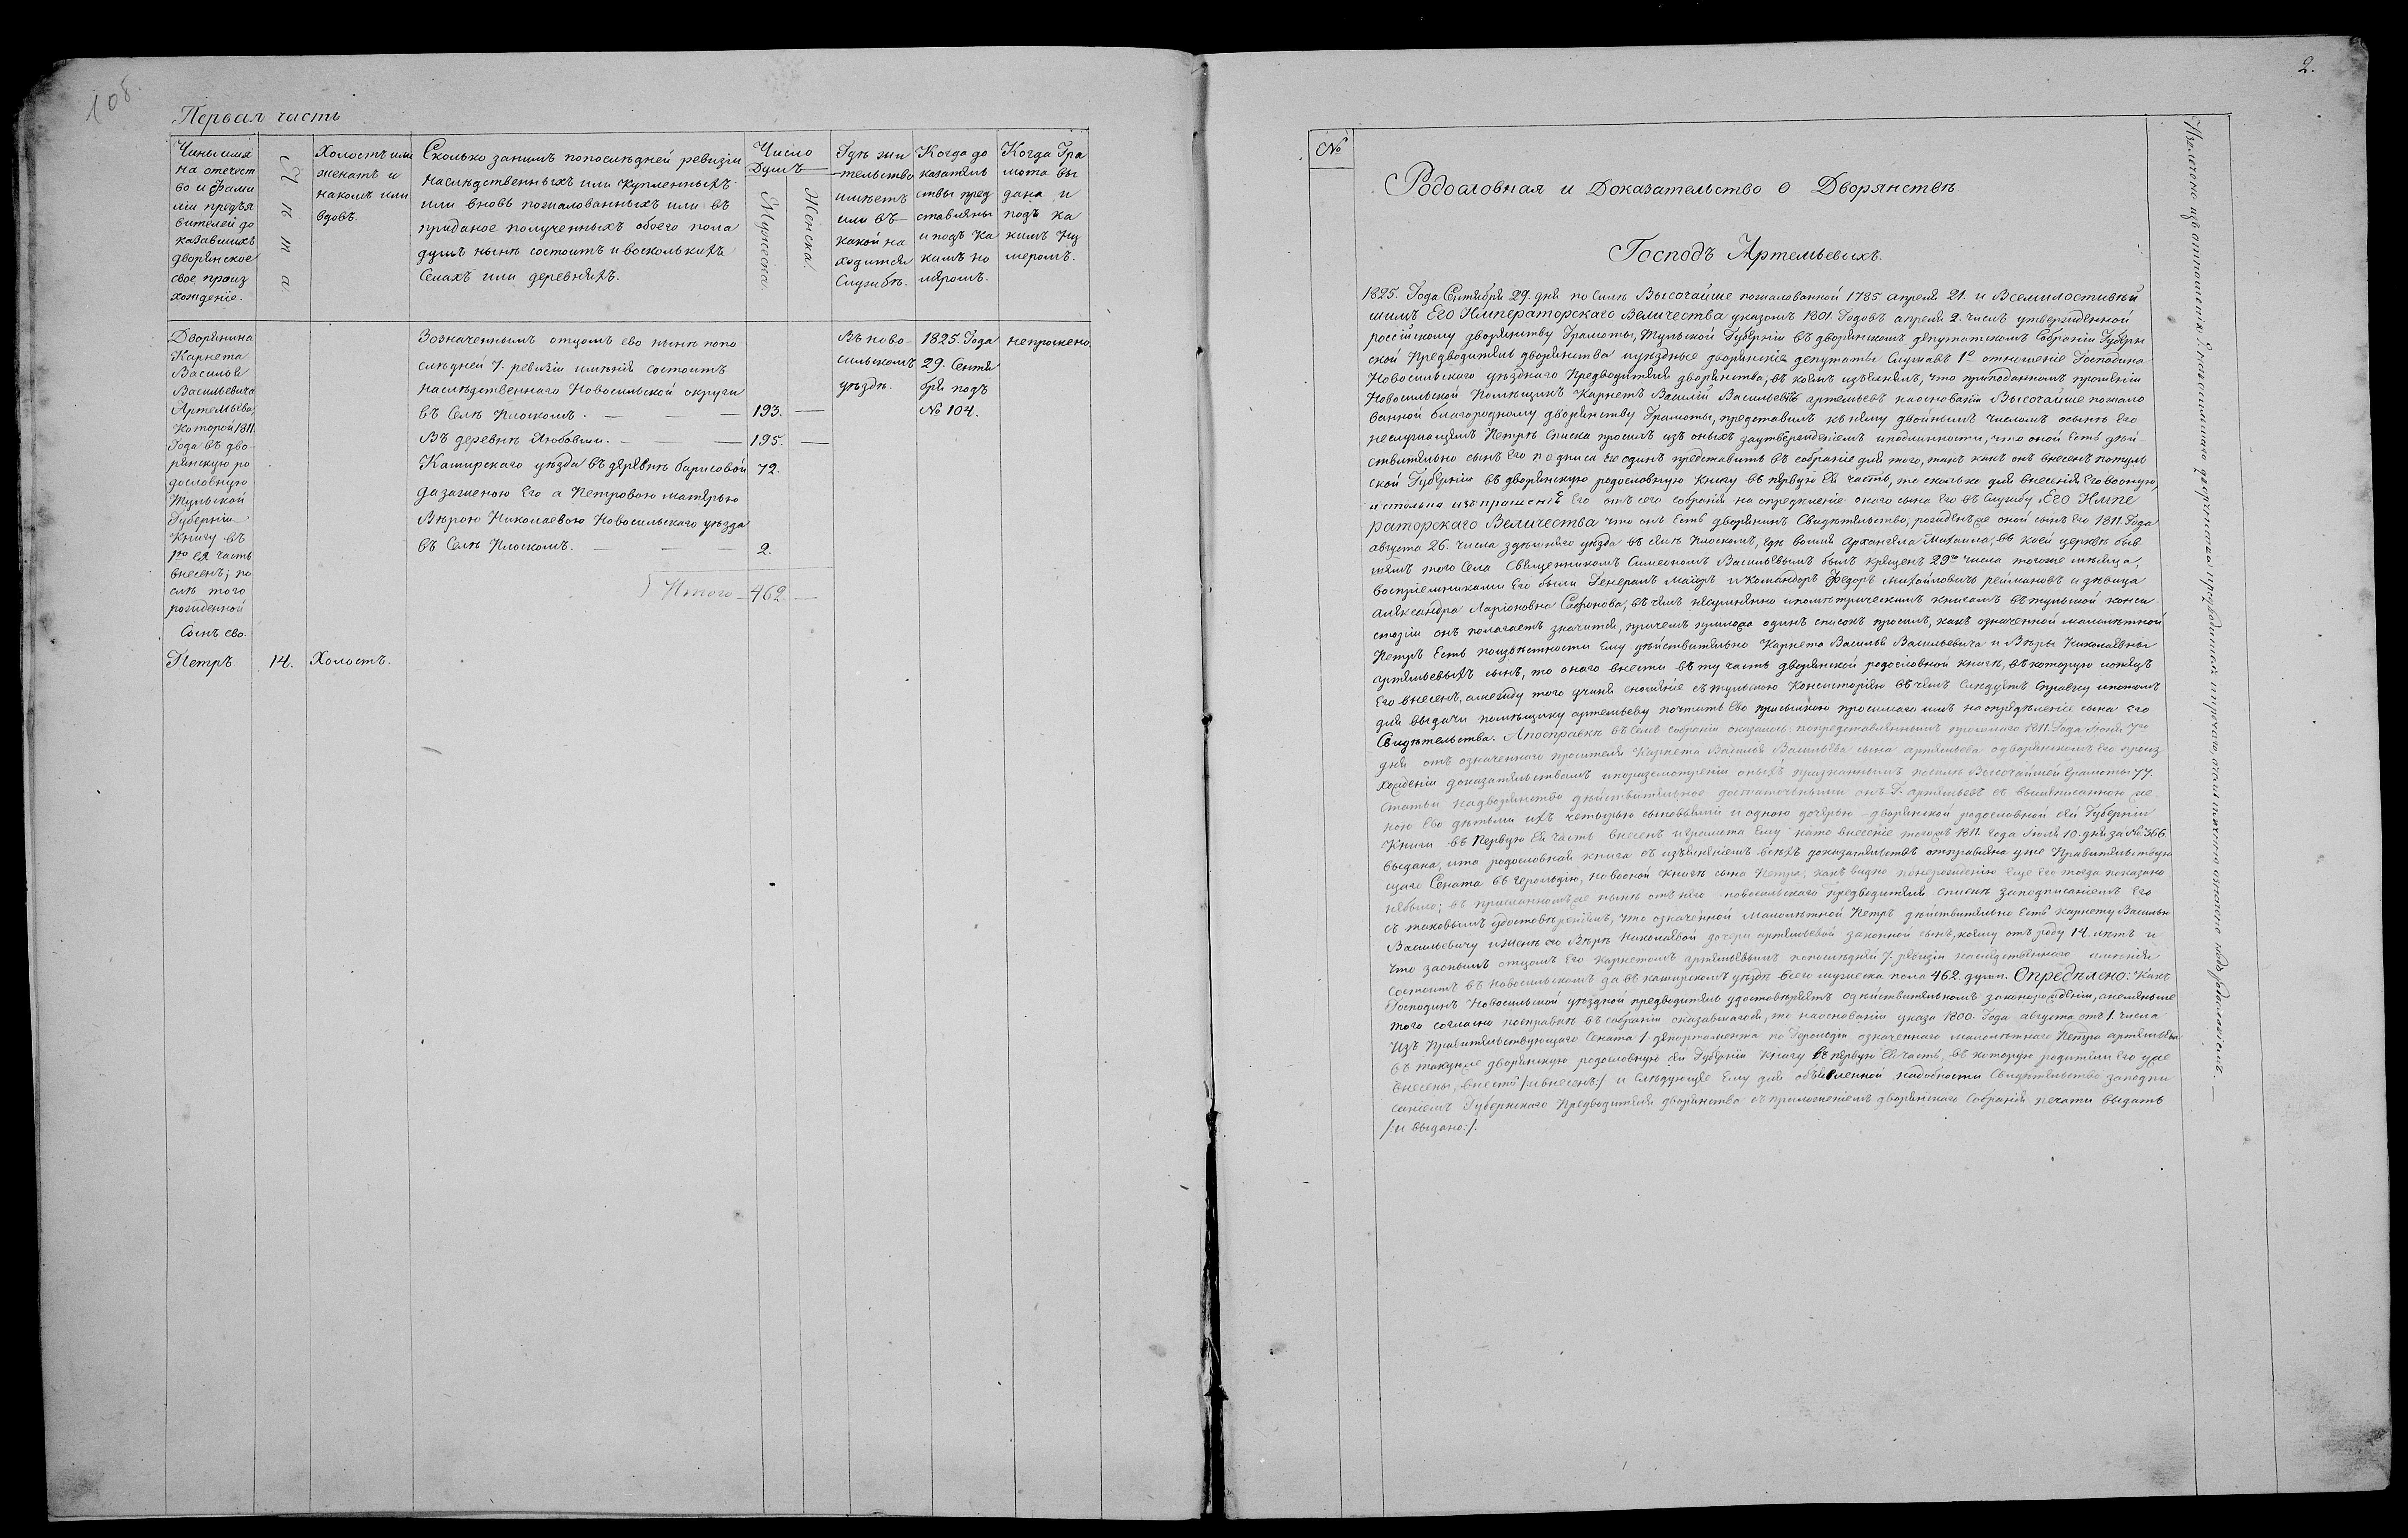 108.
Первая часть
Чины имя
на отечест
во и фами
лiи предъя
вителей до
казавшихъ
дворянское
свое произ
хожденiе.
Лѣта
Холостъ или
женатъ и
накомъ или
вдовъ.
Сколько занимъ попослѣдней ревизiи
наслѣдственныхъ или купленныхъ
или вновь пожалованныхъ или въ
приданое полученныхъ обоего пола
душъ нынѣ состоитъ и восколькихъ
Селахъ или деревняхъ.
Число
Душъ
Мужеска.
Женска.
Гдѣ жи
тельство
имѣетъ
или въ
какой на
ходится
Службѣ.
Когда до
казатель
ствы пред
ставлены
и подъ ка
кимъ но
меромъ.
Когда Гра
мота вы
дана и
подъ ка
кимъ ну
меромъ.
Дворянина
Карнета
Василья
Васильевича
Артемьева,
Которой 1811.
Года въ дво-
рянскую ро
дословную
Тульской
Губернiи
Книгу въ
1ю ея часть
внесенъ; по
слѣ того
рожденной
Сынъ ево.
Петръ 14. Холостъ.
Зозначеннымъ отцомъ ево нынѣ попо
слѣдней 7. ревизiи имѣнiя состоитъ
наслѣдственнаго Новосильской округи
въ Селѣ Плоскомъ. — — — 193. —
Въ деревнѣ Любовши. — — — 195. —
Каширскаго уѣзда въ деревнѣ барисовой 72.
да заженою Его а Петровою матерью
Вѣрою Николаевою Новосильскаго уѣзда
въ Селѣ Плоскомъ. — — — 2.
Итого — 462. —
Въ ново-
сильскомъ
уѣздѣ.
1825. Года
29. Сентя
бря подъ
№ 104.
непрошено.
2.
№
Родословная и Доказательство о Дворянствѣ
Господъ Артемьевыхъ.
1825. Года Сентября 29. дня по Силѣ Высочайше пожалованной 1785 апреля 21. и Всемилостивѣй
шимъ Его Императорскаго Величества указомъ 1801. Годовъ апреля 2. числъ утвержденной
россiйскому дворянству Грамоты, Тульской Губернiи въ дворянскомъ депутатскомъ Собранiи Губерн
ской Предводитель дворянства иуѣздные дворянскiя депутаты Слушавъ 1е отношенiе Господина
Новосильскаго уѣзднаго Предводителя дворянства, въ коемъ изъясняетъ, что приподанномъ прошенiи
Новосильской Помѣщикъ Карнетъ Василiй Васильевъ артемьевъ наоснованiи Высочайше пожало
ванной благородному дворянству Грамоты, представилъ къ нему двойнымъ числомъ осынѣ Его
неслужащемъ Петрѣ Списка просилъ изъ оныхъ заутвержденiемъ иподлинности, что оной Есть дѣй-
ствительно сынъ Его подписа Ее одинъ представить въ собранiе для того, такъ какъ онъ внесенъ потуль
ской Губернiи въ дворянскую родословную Книгу въ первую Ея часть, то сколько для внесенiя Еговоную,
истолько изъпрашенiя Его отъ сего собранiя на опредѣленiе онаго сына Его въ Службу Его Импе
раторскаго Величества что онъ Есть дворянинъ Свидѣтельство; рожденъ же оной сынъ Его 1811. Года
августа 26. числа здѣшняго уѣзда въ селѣ Плоскомъ, Гдѣ вошiя Архангела Михаила, въ коей церквѣ быв
шемъ того Села Священникомъ Симеономъ Васильевымъ былъ крещенъ 29го числа тогоже мѣсяца,
воспрiемниками Его были Генералъ Маiоръ и Командоръ Федоръ Михайловичъ реймановъ и дѣвица
александра Ларiоновна Сафонова, въ чемъ несумнѣнно ипометрическимъ книгамъ въ тульской конси
сторiи онъ полагаетъ значится, причемъ приложа одинъ списокъ просилъ, какъ означенной малолѣтной
Петръ Есть поизвѣстности Ему дѣйствительно Карнета Василья Васильевича и Вѣры Николаевны
артемьевыхъ сынъ, то онаго внести въ ту часть дворянской родословной книги, въ которую иотецъ
Его внесенъ, амежду того учиня сношенiе съ тульскою Консисторiею въ чемъ Слѣдуетъ Справку ипотомъ
для выдачи помѣщику артемьеву почтить Ево присылкою просимаго имъ наопредѣленiе сына Его
Свидѣтельства. Апосправкѣ въ Семъ собранiи оказалось: попредставленнымъ прошлаго 1811. Года Июня 7го
дня отъ означеннаго просителя Карнета Василья Васильева сына артемьева одворянскомъ Его произ
хожденiи доказательствамъ иноразсмотренiи оныхъ признаннымъ посилѣ Высочайшей Грамоты 77.
статьи надворянство дѣйствительное достаточными онъ Г. артемьевъ съ вышеписанною же
ною Ево дѣтьми ихъ четырью сыновьями и одною дочерью дворянской родословной сей Губернiи
Книги въ Первую Ея часть внесенъ играмота Ему нато внесенiе тогожъ 1811. Года Июля 10. дня за № 366.
выдана, ита родословная книга съ изъясненiемъ всѣхъ доказательствъ отправлена уже Правительствую
щаго Сената въ Герольдiю, новоной Книгѣ сына Петра, какъ видно понерожденiю Еще Его тогда показано
небыло; въ присланномъже нынѣ отъ него новосильскаго предводителя спискѣ заподписанiемъ Его
съ таковымъ удостовѣренiемъ, что означенной малолѣтной Петръ дѣйствительно Есть карнету Василью
Васильевичу ижены его Вѣрѣ Николаевой дочери артемьевой законной сынъ, коему отъ роду 14. лѣтъ и
что заонымъ отцомъ Его карнетомъ артемьевымъ попослѣдней 7. ревизiи наслѣдственнаго имѣнiя
состоитъ въ Новосильскомъ да въ каширскомъ уѣздѣ всего мужеска пола 462. души. Опредѣлено: Какъ
Господинъ Новосильской уѣздной предводитель удостовѣряетъ одѣйствительномъ законорожденiи, анеменьше
того согласно посправкѣ въ собранiи оказавшагося, то наоснованiи указа 1800. Года августа отъ 1. числа
Изъ Правительствующаго Сената 1. департамента по Герольдiи означеннаго малолѣтнаго Петра артемьева
въ такуюже дворянскую родословную сей Губернiи Книгу въ первую Ея часть, въ которую родители Его уже
внесены, внести /: ивнесенъ:/ и слѣдующее Ему для объявленной надобности Свидѣтельство заподпи
санiемъ Губернскаго Предводителя дворянства съприложенiемъ дворянскаго Собранiя печати выдать
/: и выдано:/.